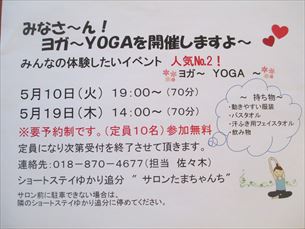 みなさ～ん！
ヨガ～YOGAを開催しますよ～
みんなの体験したいイベント 人気No.2！
ヨガ～ YOGA ～
5月10日（火） 19:00～（70分）
5月19日（木） 14:00～（70分）
※要予約制です。（定員10名）参加無料
定員になり次第受付を終了させて頂きます。
連絡先:018-870-4677（担当 佐々木）
ショートステイゆかり追分 “サロンたまちゃんち”
サロン前に駐車できない場合は、
隣のショートステイゆかり追分に停めてください。
～ 持ち物～
・動きやすい服装
・バスタオル
・汗ふき用フェイスタオル
・飲み物